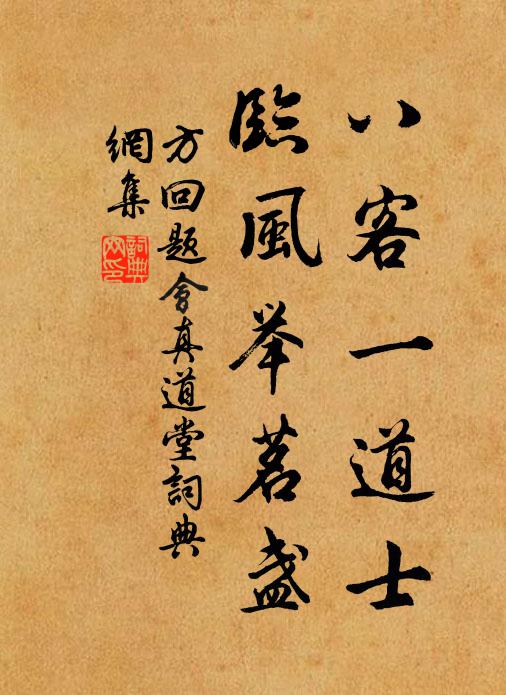 八客一道士
臨風举茗盏
方回题會真道堂詞典
網集
詞典
网印